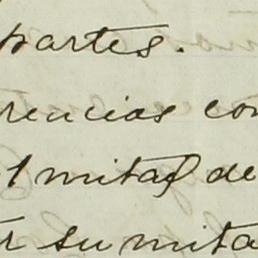 partes.
rencias con
1 mitad de
r su mita